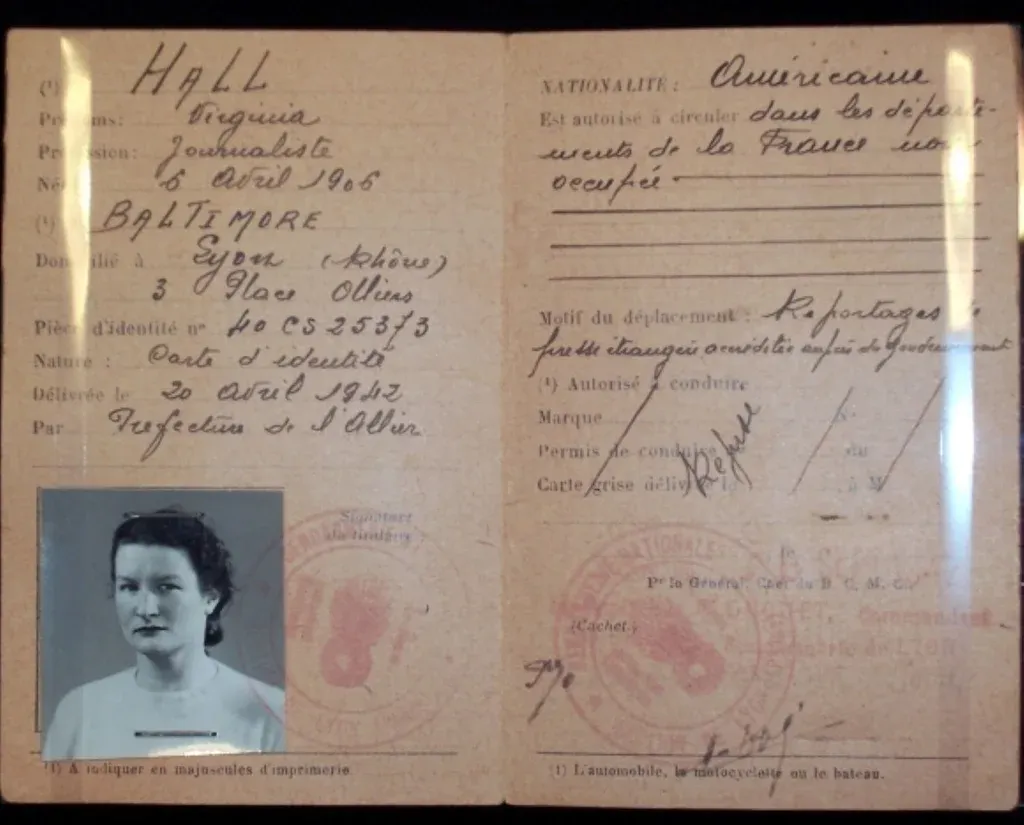 (1) HALL
Prénoms: Virginia
Profession: Journaliste
Né 6 Avril 1906
(1) BALTIMORE
Domicilié à Lyon (Rhône)
3 Place Olliers
Pièce d'identité n° 40 CS 25373
Nature : Carte d'identité
Délivrée le 20 Avril 1942
Par Prefecture de l'Allier
Signature
du titulaire :
(1) A indiquer en majuscules d'imprimerie.
NATIONALITÉ : Américaine
Est autorisé à circuler dans les départe-
ments de la France non
occupée
Motif du déplacement : Reportages de
presse étrangère accréditée auprès du Gouvernement
(1) Autorisé à conduire
Marque N°
Permis de conduire du
Carte grise délivrée le à M
Refusé
le
Pr le Général, Chef du
(Cachet.)
Commandant
de LYON
(1) L'automobile, la motocyclette ou le bateau.